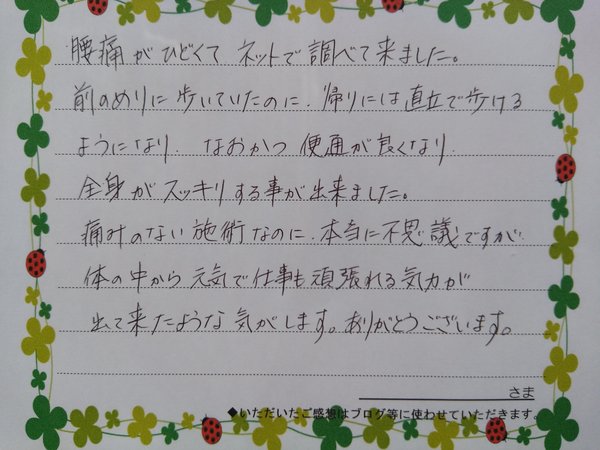 腰痛がひどくて ネットで調べて来ました。
前のめりに歩いていたのに、帰りには直立で歩ける
ようになり、なおかつ 便通が良くなり、
全身がスッキリする事が出来ました。
痛みのない施術なのに、本当に不思議ですが
体の中から元気で仕事も頑張れる気力が
出て来たような気がします。ありがとうございます。
さま
◆いただいたご感想はブログ等に使わせていただきます。